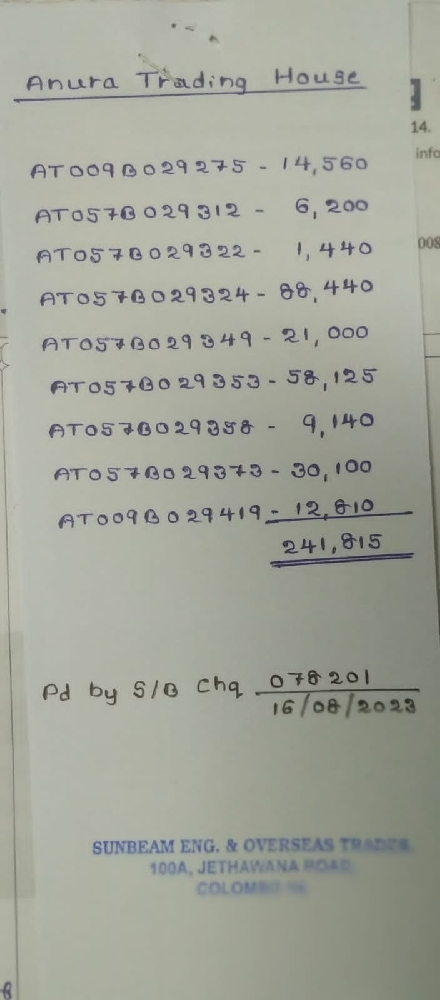 Anura Trading House
AT009B029275 - 14,560
AT057B029312 - 6,200
AT057B029322 - 1,440
AT057B029324 - 88,440
AT057B029349 - 21,000
AT057B029353 - 58,125
AT057B029358 - 9,140
AT057B029373 - 30,100
AT009B029419 - 12,810
241,815
Pd by S/B Chq 078201
16/08/2023
SUNBEAM ENG. & OVERSEAS TRADES
100A, JETHAWANA ROAD,
COLOMBO
14.
info
008